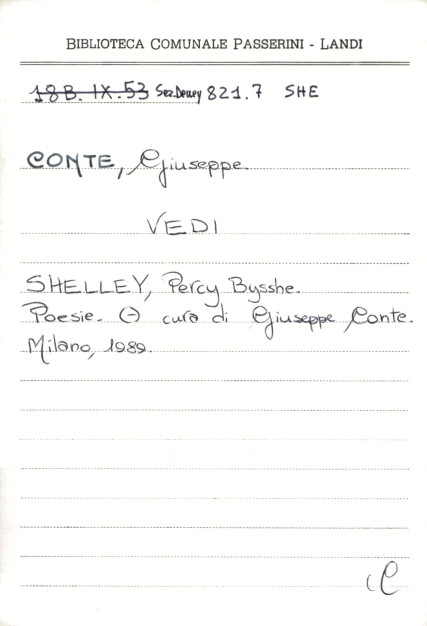 BIBLIOTECA COMUNALE PASSERINI - LANDI
18B. IX. 53 Sez. Dewey 821.7 SHE
CONTE, Giuseppe.
VEDI
SHELLEY, Percy Bysshe.
Poesie. (-) cura di Giuseppe Conte.
Milano, 1989.